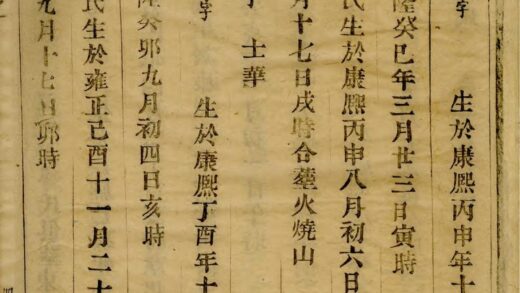 字 生於康熙丙申年十
隆癸巳年三月廿三日寅時
氏生於康熙丙申八月初六日
月十七日戌時合塟火燒山
士華
字 生於康熙丁酉年十
隆癸卯九月初四日亥時
氏生於雍正己酉十一月二十
九月十七日卯時